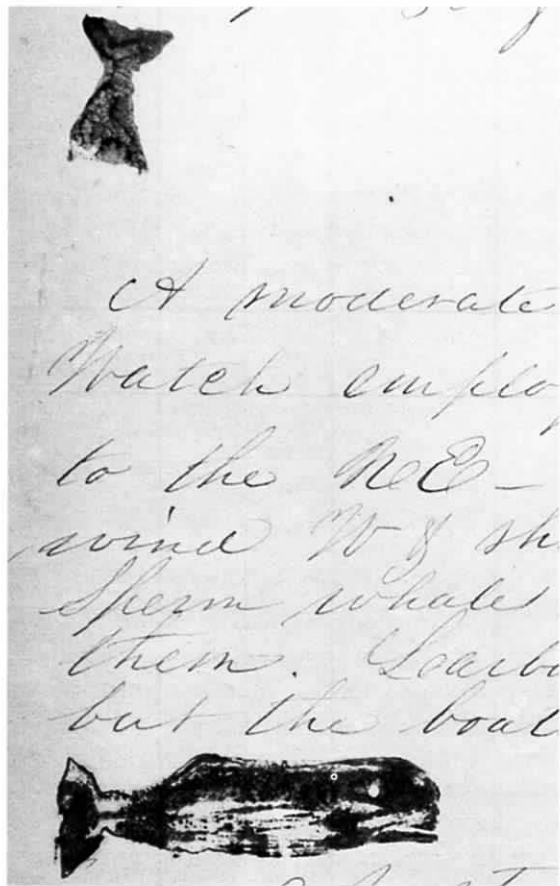 A moderate
Watch employ
to the NE –
wind W & sh
Sperm whale
them. Learbo
but the boat